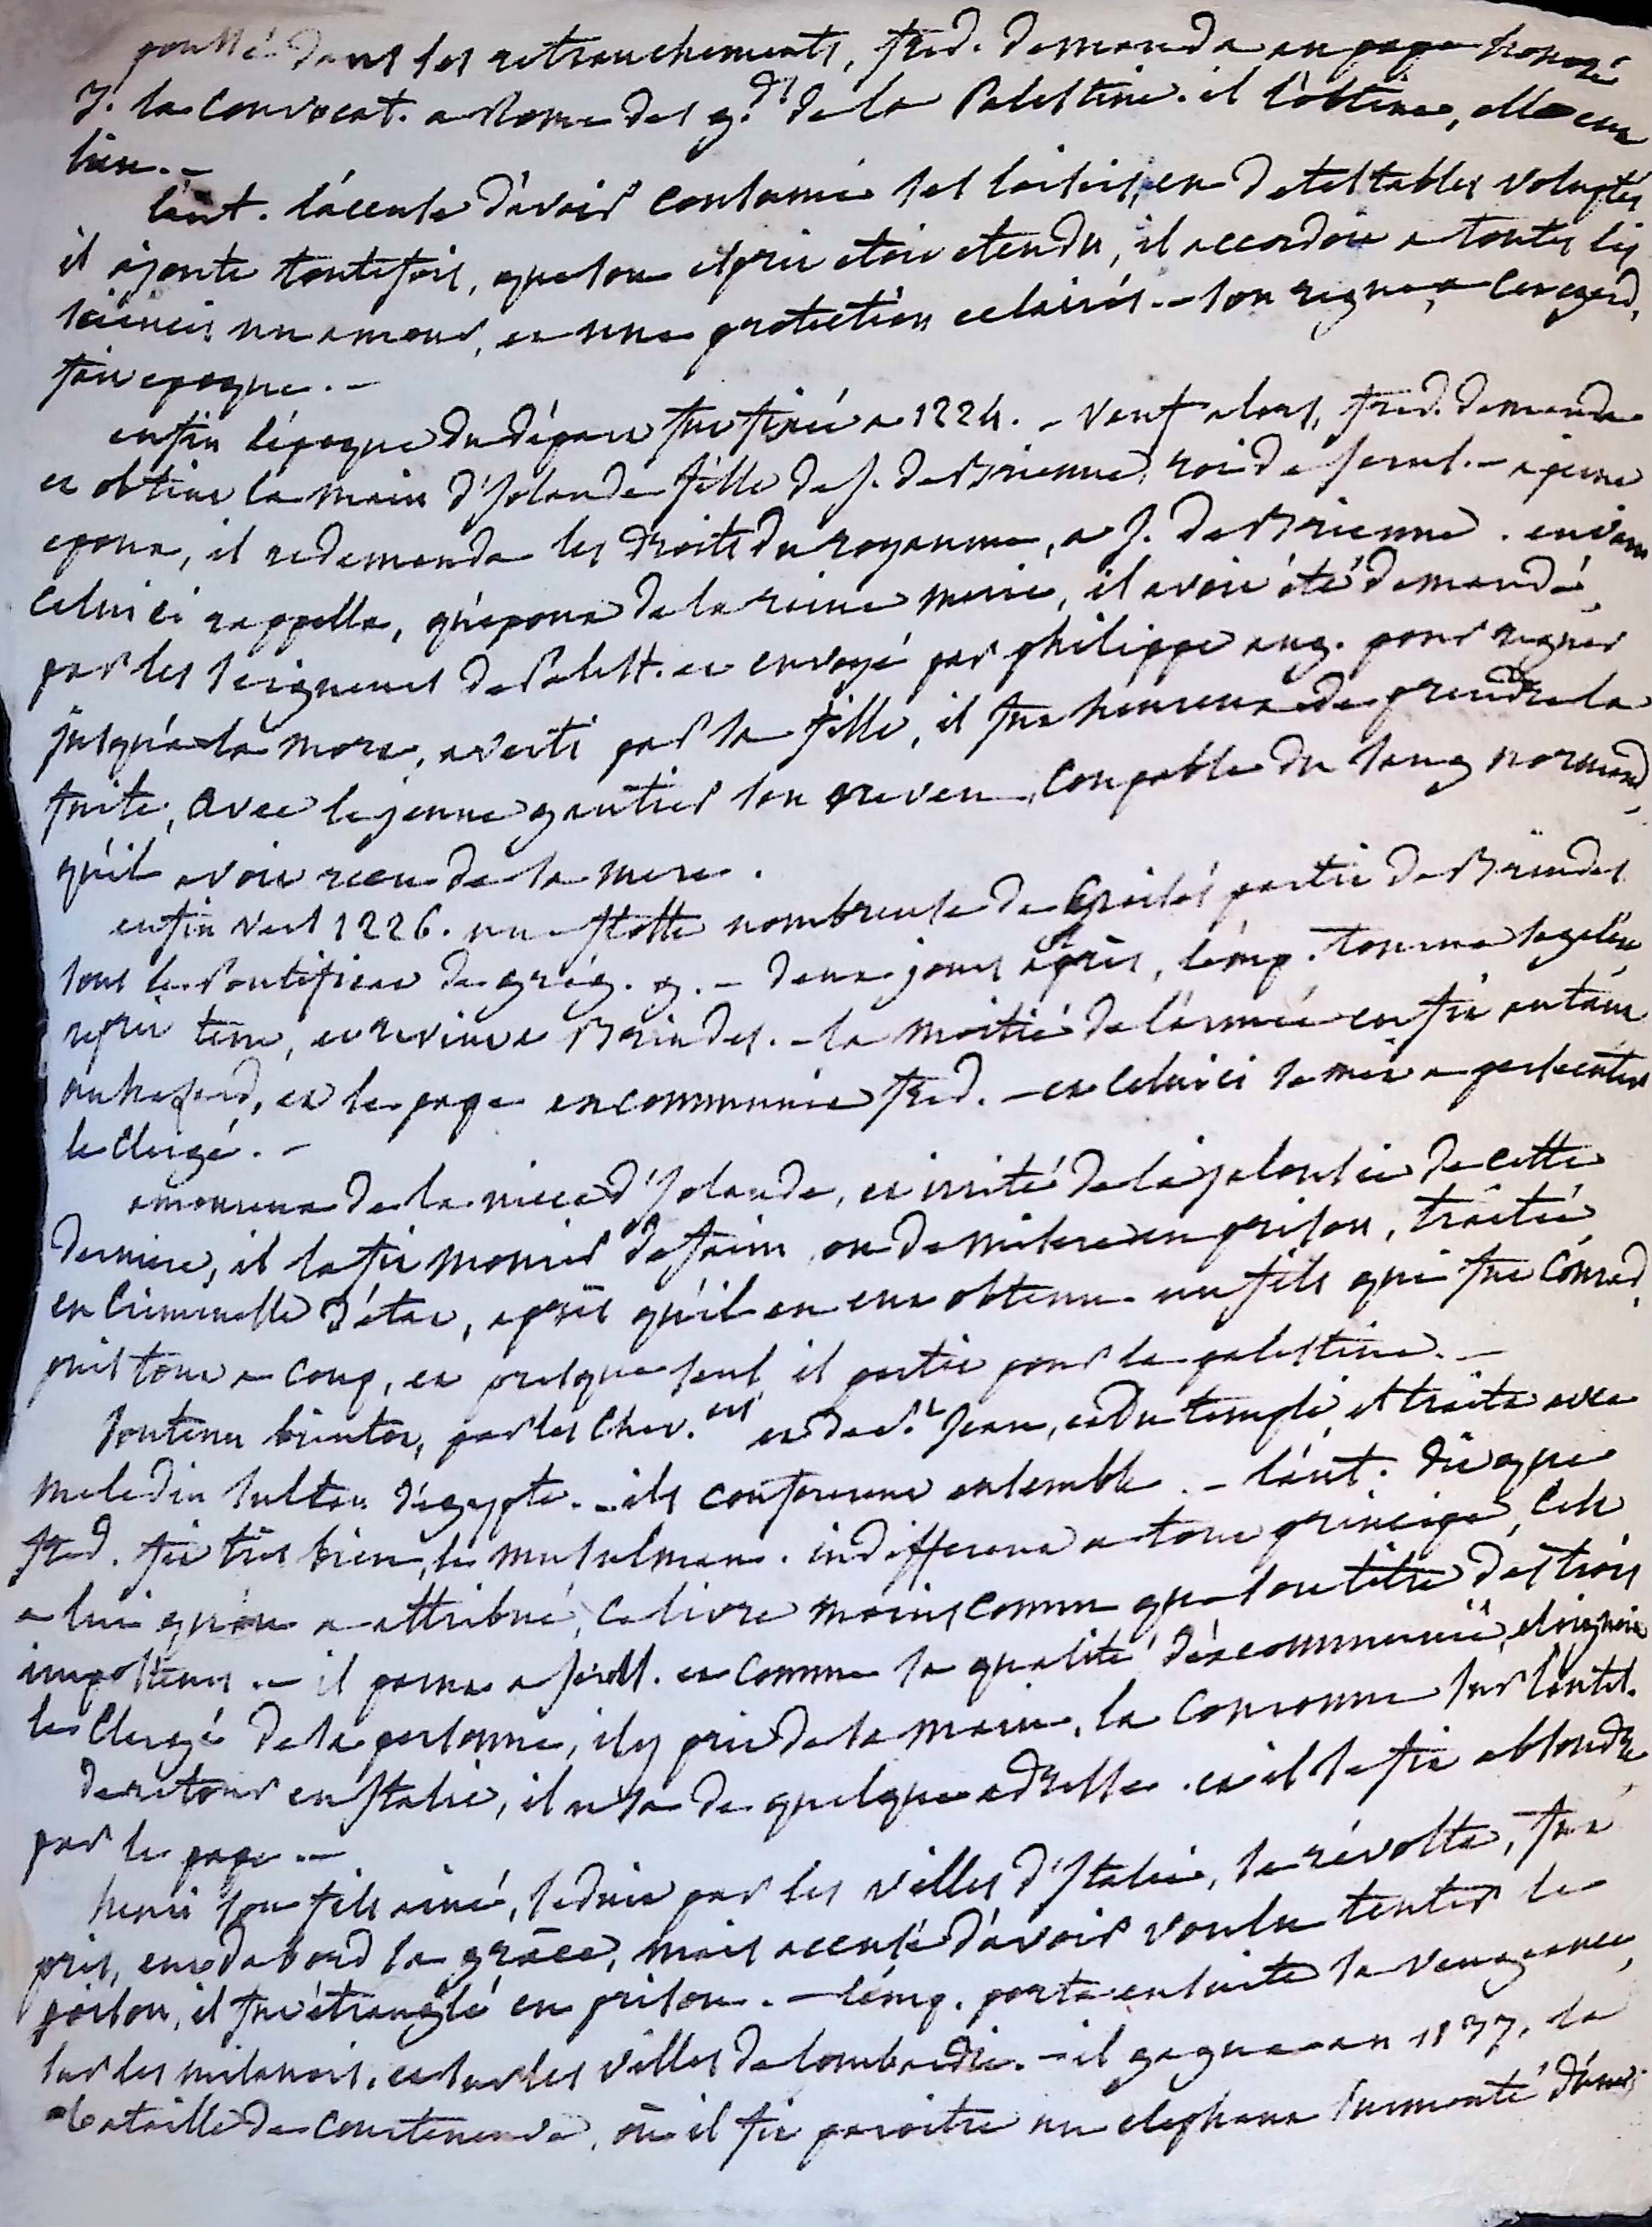 poussé dans ses retranchements, fred. demanda au pape honoré
3. la convocat. a Rome des g.ds de la Palestine. il l'obtint, elle eut
lieu. -
l'aut. l'accuse d'avoir consumé ses loisirs, en detestables voluptés
il ajoute toutefois, que son esprit etoit etendu, il accordoit a toutes les
sciences un amour, et une protection eclairés. - son regne a cet egard,
fait epoque. -
enfin l'époque du départ fut fixée a 1224. - veuf alors, fred. demanda
et obtint la main d'Jolande fille de J. de Brienne, roi de Jerus. - a peine
epoux, il redemanda les droits du royaume, a J. de Brienne. en vain
celui ci rappella, qu'epoux de la reine marie, il avoit été demandé,
par les seigneurs de Palest. et envoyé par philippe aug. pour regner
jusqu'à sa mort, averti par sa fille, il fut heureux de prendre la
fuite, avec le jeune gautier son neveu, coupable du sang normand,
qu'il avoit recu de sa mere.
enfin vers 1226. une flotte nombreuse de croisés partit de Brindes
sous le Pontificat de grég. 9. - deux jours après, l'emp. tourna sa galère
reprit terre, et revint a Brindes. - la moitié de l'armée en fit autant
au hasard, et le pape excommunia fred. - et celui ci se mit a persecuter
le clergé. -
amoureux de la niece d'Jolande, et irrité de la jalousie de cette
derniere, il la fit mourir de faim ou de misere en prison, traitée,
en criminelle d'état, après qu'il en eut obtenu un fils qui fut Conrad,
puis tout a coup, et presque seul il partit pour la palestine. -
soutenu bientot, par les chev.ers et de s.t Jean, et du temple, il traita avec
meledin sultan d'egypte. - ils conférerent ensemble. - l'aut. dit que
fred. fit très bien, le musulman. indifferent a tout principe, c'est
a lui qu'on a attribué, ce livre moins connu que son titre des trois
imposteurs. - il passa a Jérus. et comme sa qualité d'excommunié, eloignoit
le clergé de sa personne, il y prit de sa main, la couronne sur l'autel.
de retour en Italie, il usa de quelque adresse. et il se fit absoudre
par le pape. -
henri son fils ainé, seduit par les villes d'Italie, se révolta, fut
pris, eut d'abord sa grâce, mais accusé d'avoir voulu tenter le
poison, il fut étranglé en prison. - l'emp. porta ensuite sa vengeance,
sur les milanois, et sur les villes de lombardie. - il gagna en 1237, la
bataille de courtenuova, où il fit paroitre un elephant surmonté d'une